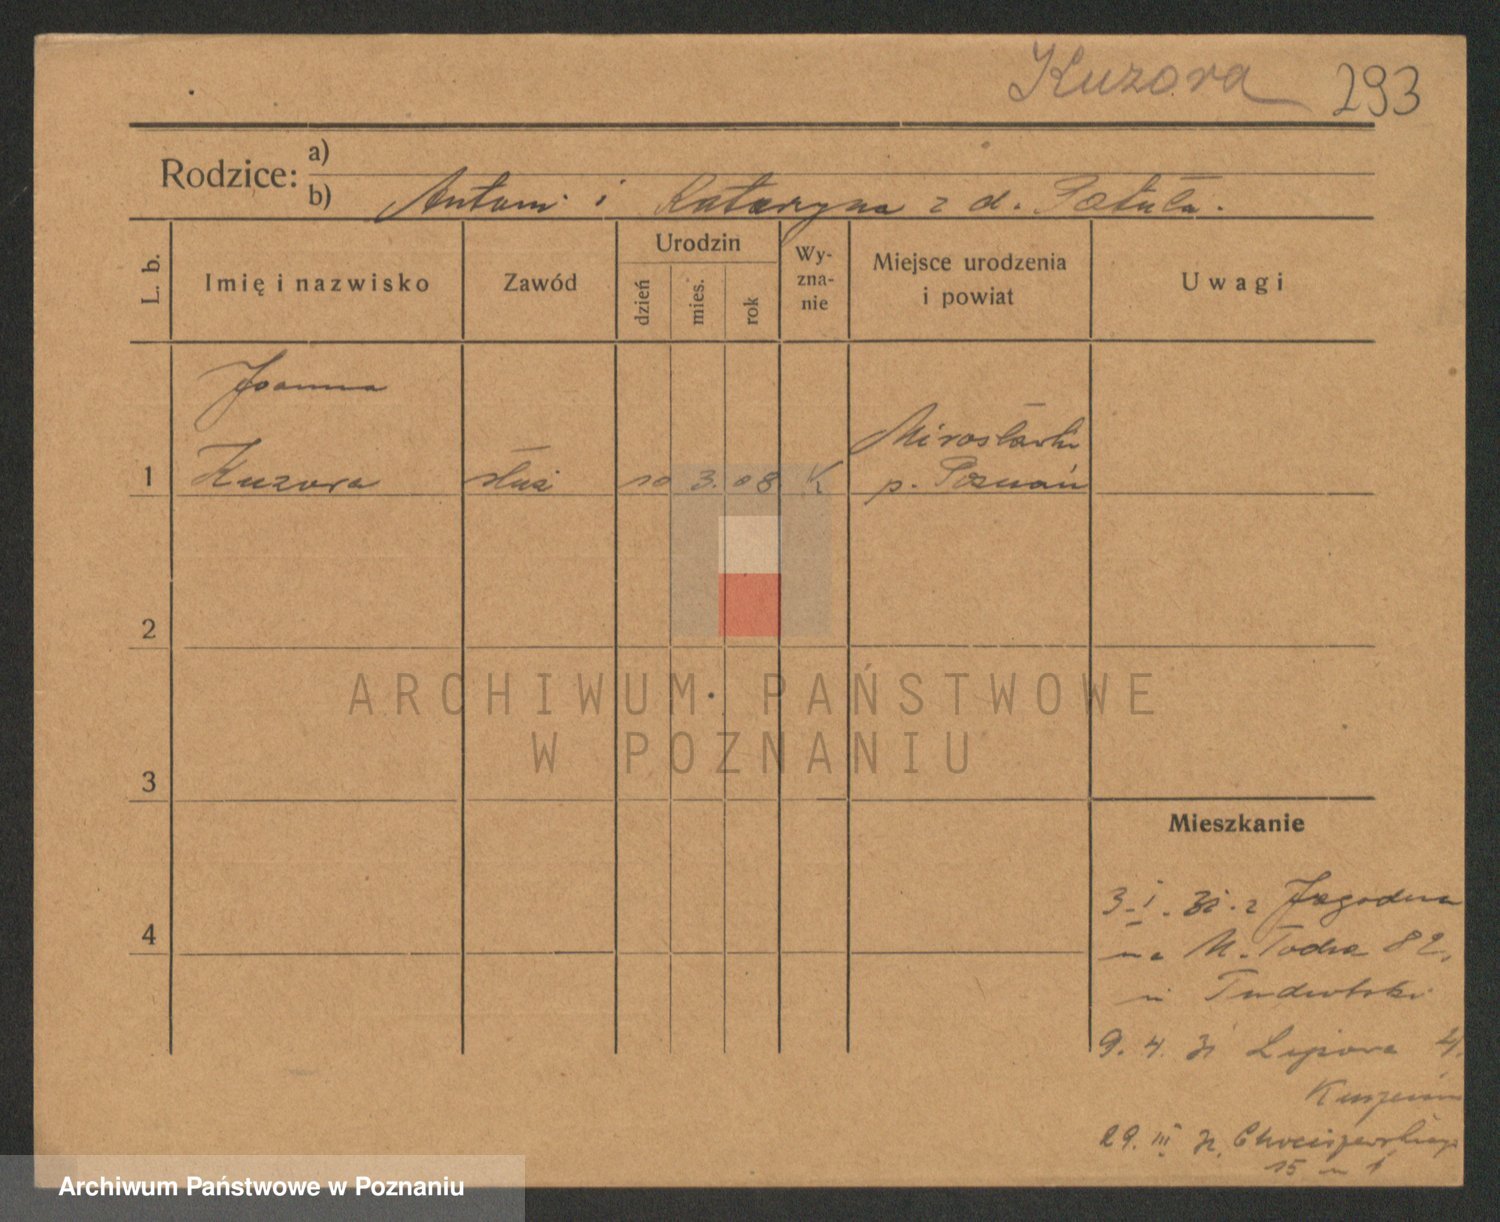 Kuzora 293
Rodzice: a)
b) Antoni i Katarzyna z d. Patuła.
L. b.
Imię i nazwisko
Zawód
Urodzin
dzień
mies.
rok
Wy-
zna-
nie
Miejsce urodzenia
i powiat
Uwagi
Joanna
Mirosławki
1 Kuzora służ 10 3. 08 K p. Poznań
2
ARCHIWUM PAŃSTWOWE
W POZNANIU
3
Mieszkanie
3. I. 31. z Jagodna
4
na M. Focha 82,
9. 4. 31 Lipowa 4
29. III Chociszewskiego
15 m 1
Archiwum Państwowe w Poznaniu